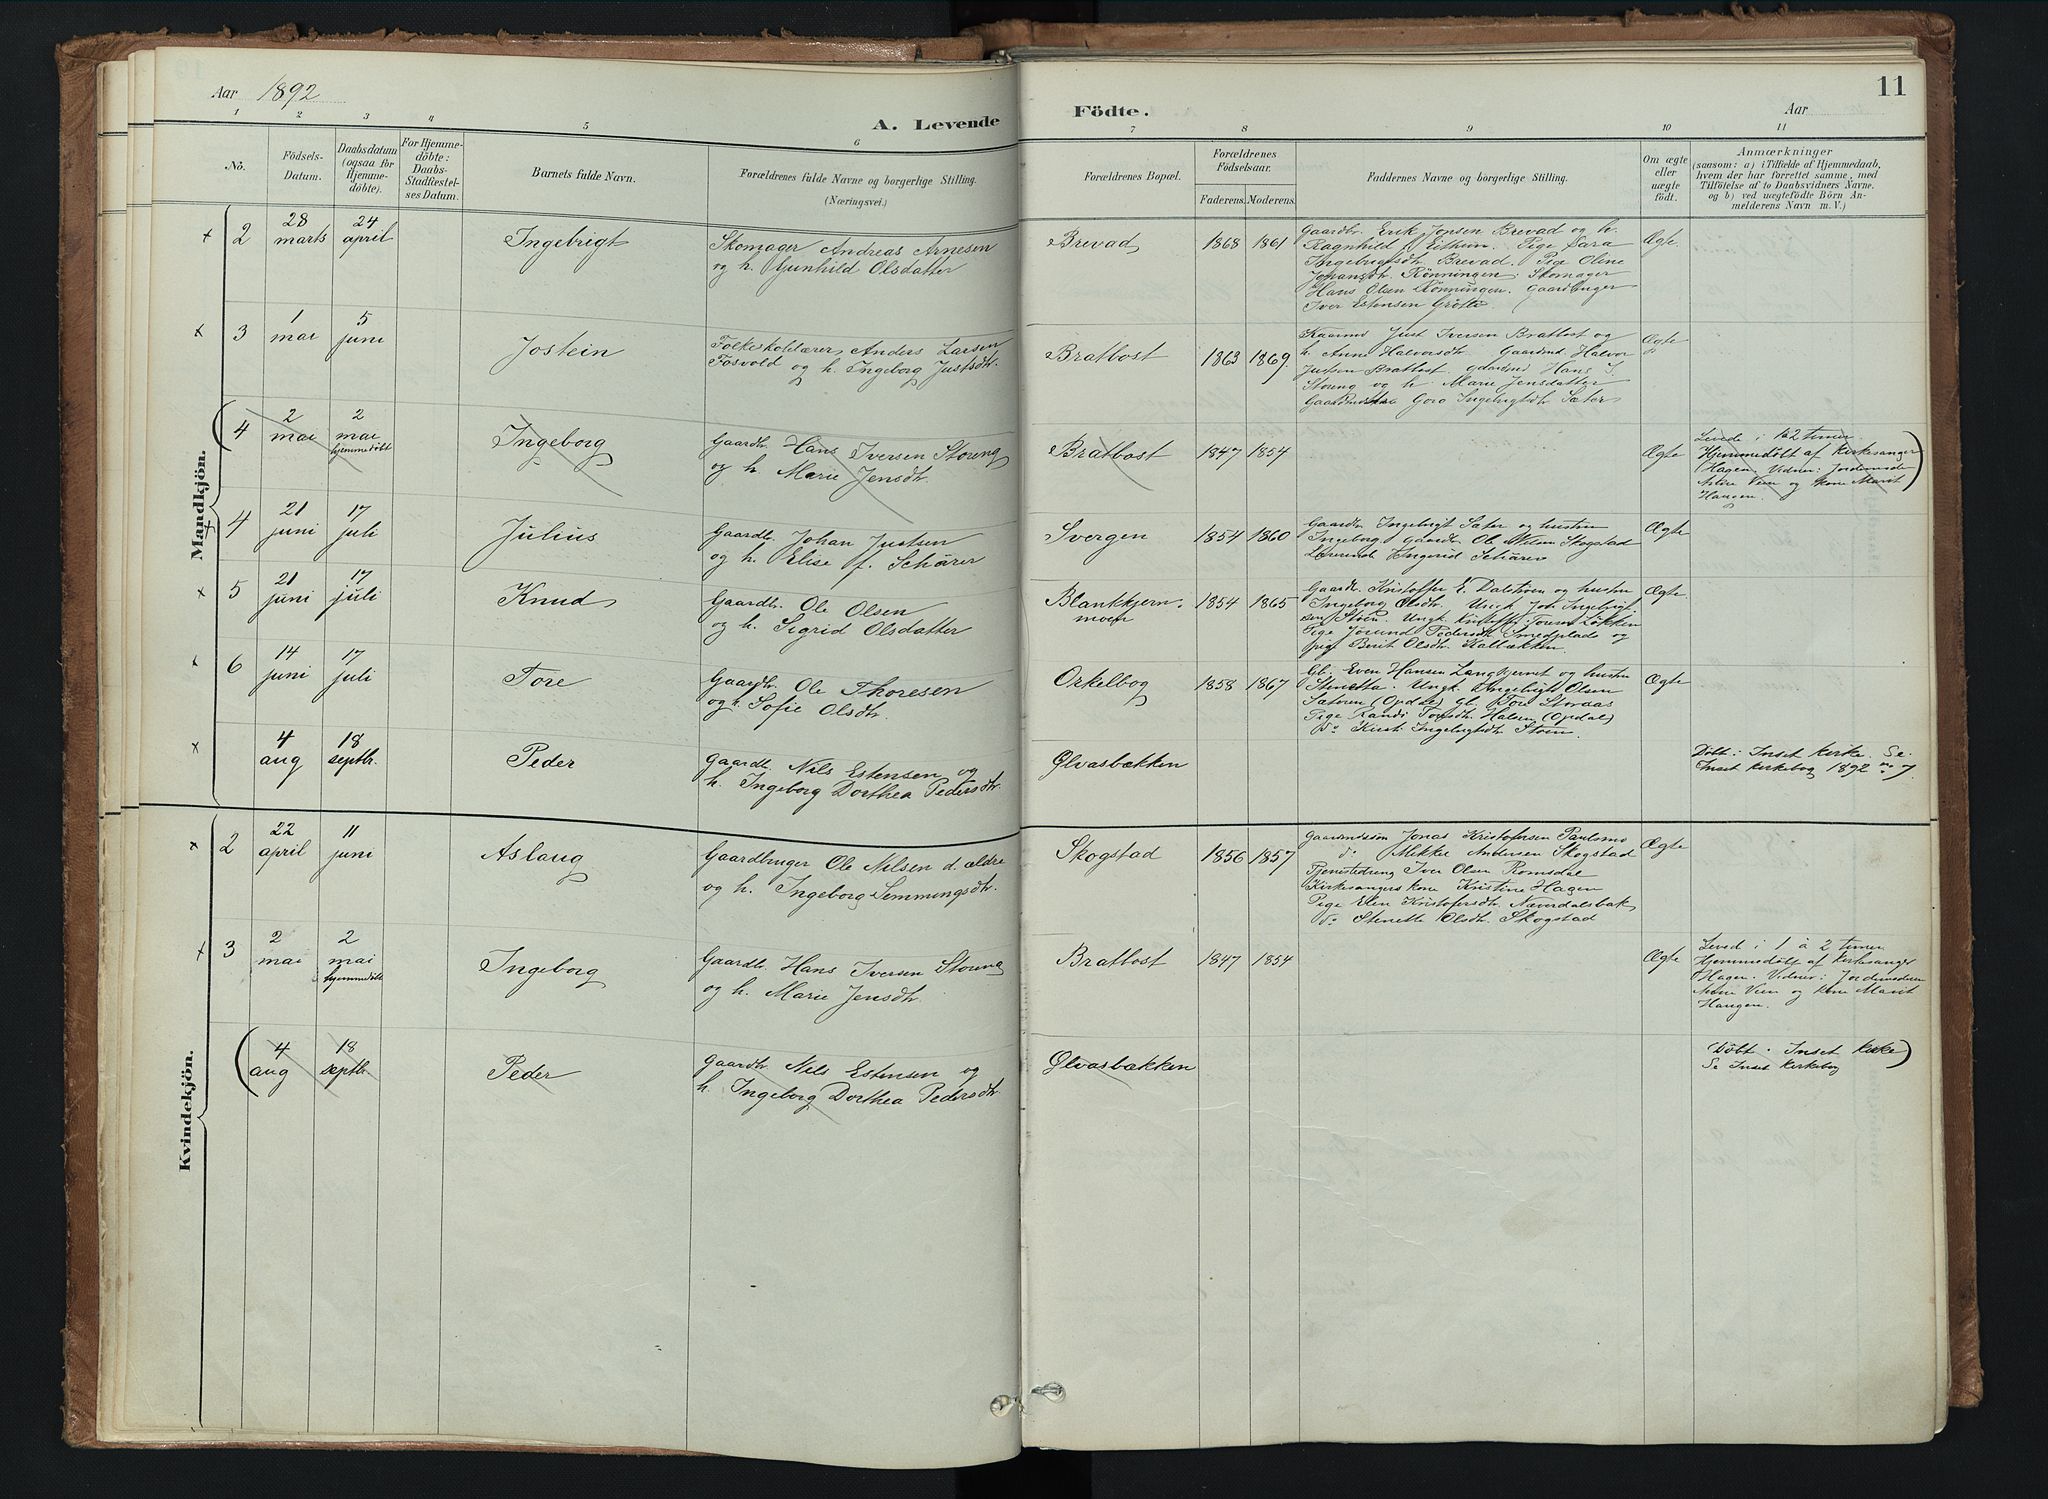 Aar 1892
A. Levende
Födte.
Aar
11
1 2 3 4 5 6 7 8 9 10 11
No.
Födsels-
Datum.
Daabsdatum
(ogsaa for
Hjemme-
döbte).
For Hjemme-
döbte:
Daabs-
Stadfæstel-
ses Datum.
Barnets fulde Navn.
Forældrenes fulde Navne og borgerlige Stilling.
(Næringsvei.)
Forældrenes Bopæl.
Forældrenes
Födselsaar.
Faderens. Moderens.
Faddernes Navne og borgerlige Stilling.
Om ægte
eller
uægte
födt.
Anmærkninger
(saasom: a) i Tilfælde af Hjemmedaab,
hvem der har forrettet samme, med
Tilföielse af to Daabsvidners Navne.
og b) ved uægtefödte Börn An-
melderens Navn m. V.)
Mandkjön.
2
28
marts
24
april
Ingebrigt
Skomager Andreas Arnesen
og h. Gunhild Olsdatter
Brevad
1868 1861
Gaardbr. Erik Jonsen Brevad og h.
Ragnhild Eithun. Pige Sara
Ingebrigtsdtr. Brevad. Pige Oline
Johansdtr. Rönningen. Skomager
Hans Olsen Rönningen. Gaardbruger
Iver Estensen Grötte.
Ægte
3
1
mai
5
juni
Jostein
Folkeskolelærer Anders Larsen
Fosvold og h. Ingeborg Justsdtr.
Bratbost
1863 1869.
Kaarmd Just Iversen Bratbost og
h. Anne Halvorsdtr. Gaardmd Halvor
Justsen Bratbost. Gaardmd Hans I.
Storeng og h. Marie Jensdatter
Goro Ingebrigtsdtr. Sæter
Ægte
4
2
mai
2
mai
hjemmedöbt
Ingeborg
Gaardbr. Hans Iversen Storeng
og h. Marie Jensdtr.
Bratbost
1847 1854
Ægte
Levede i 1 à 2 timer.
Hjemmedöbt af Kirkesanger
Hagen. Vidner: Jordemoder
Veen og kone Marit
Haugen.
4
21
juni
17
juli
Julius
Gaardbr. Johan Justsen
og h. Elise f. Schärer
Svergen
1854 1860
Gaardbr Ingebrigt Sæter og hustru
Ingeborg. gaardbr Ole Nilsen Skogstad
Ingerid Schärer
Ægte
5
21
juni
17
juli
Knud
Gaardbr. Ole Olsen
og h. Sigrid Olsdatter
Blankkjern-
moen
1854 1865
Gaardbr Kristoffer E. Dalstöen og hustru
Ingeborg Olsdtr. Ungk Joh. Ingebrigt-
sen Stöen. Ungk. Kristoffer Toresen Lökken
Pige Jörund Pedersdtr. Smedplads og
pige Berit Olsdtr. Kalbækken.
Ægte
6
14
juni
17
juli
Tore
Gaardbr. Ole Thoresen
og h. Sofie Olsdtr.
Orkelbog
1858 1867
Gb. Even Hansen Langkjernet og hustru
Stenetta. Ungk. Ingebrigt Olsen
Sætoren (Opdal) gl. Tore Storaas
Pige Randi Toresdtr. Halsen (Opdal)
Do Kirsti Ingebrigtsdtr Stöen.
Ægte
4
aug
18
septbr.
Peder
Gaardbr. Nils Estensen og
h. Ingeborg Dorthea Pedersdtr.
Ølvasbækken
Döbt i Inset kirke. Se
Inset kirkebog 1892 no 7.
Kvindekjön.
2
22
april
11
juni
Aslaug
Gaardbruger Ole Nilsen d. ældre
og h. Ingeborg Semmingsdtr.
Skogstad
1856 1857
Gaardmdssön Jonas Kristofersen Paulsmo
do Mikkel Andersen Skogstad
Tjenestedreng Iver Olsen Romsdal
Kirkesangers kone Kristine Hagen
Pige Elen Kristofersdtr. Næverdalsbak
do Stenette Olsdtr. Skogstad
Ægte
3
2
mai
2
mai
hjemmedöbt
Ingeborg
Gaardbr. Hans Iversen Storeng
og h. Marie Jensdtr.
Bratbost
1847 1854
Ægte
Leved i 1 à 2 timer
Hjemmedöbt af Kirkesanger
Hagen. Vidner: Jordemoderen
Veen og kone Marit
Haugen.
4
aug
18
septbr.
Peder
Gaardbr Nils Estensen og
h. Ingeborg Dorthea Pedersdtr.
Ølvasbækken
(Döbt i Inset kirke)
Se Inset kirkebog